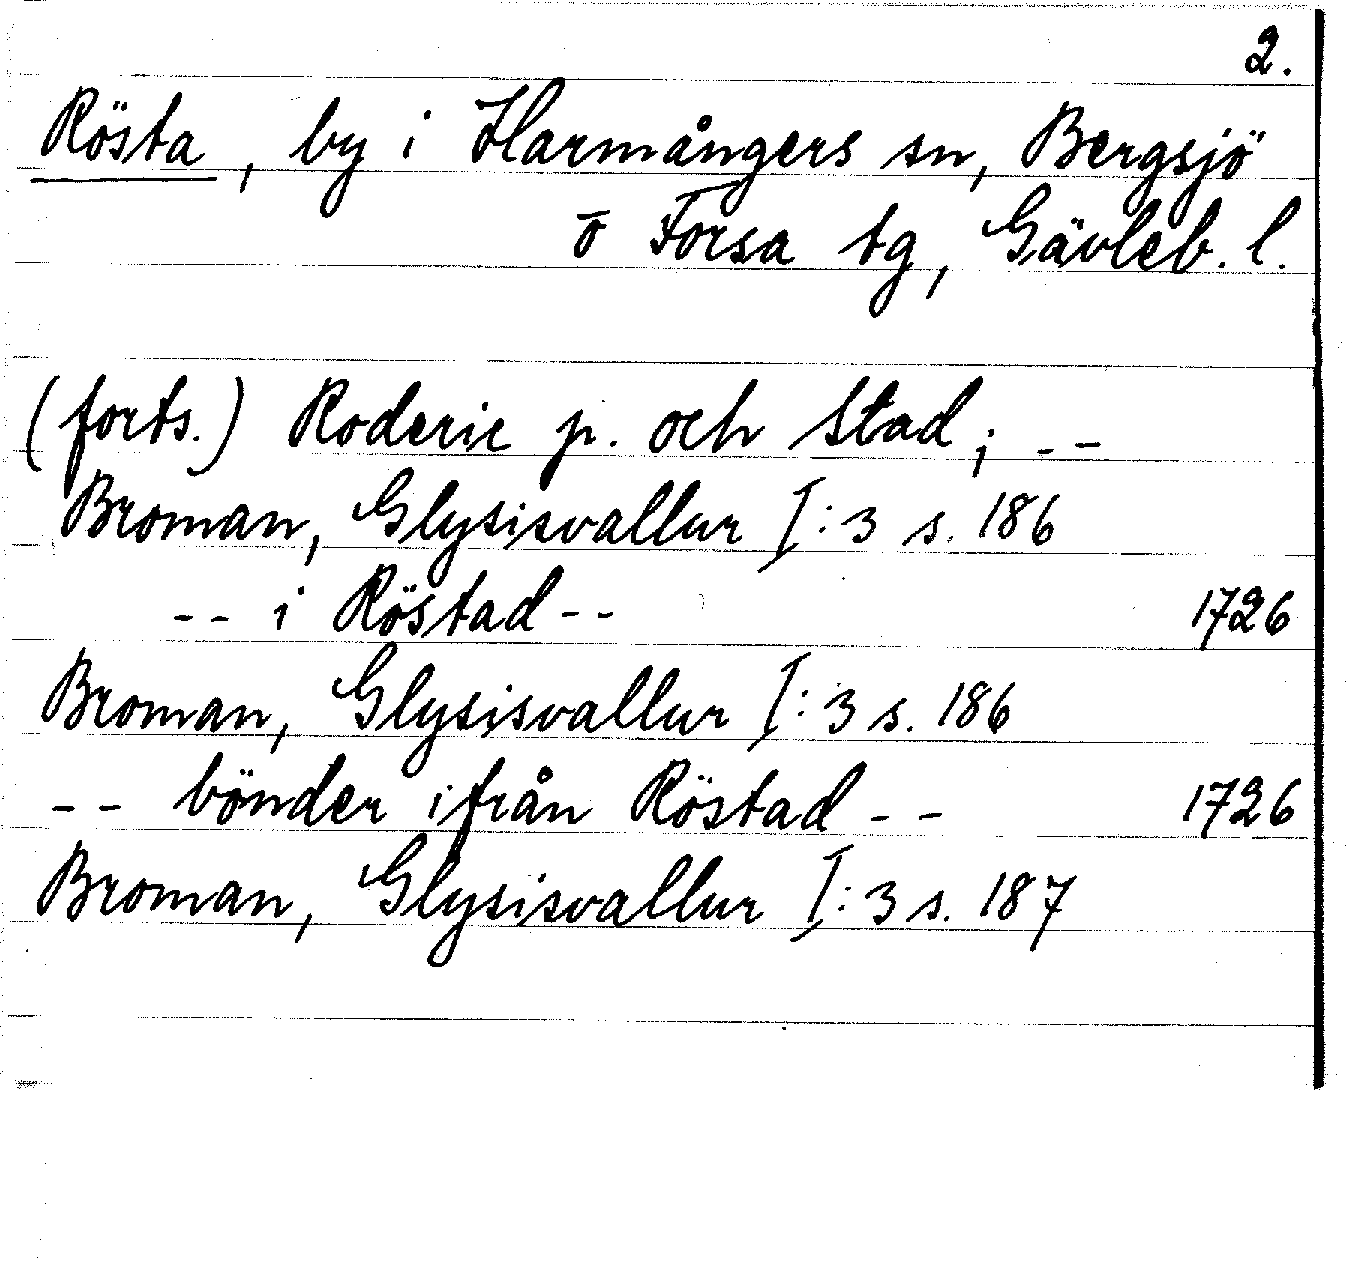 2.
Rösta, by i Harmångers sn, Bergsjö
o Forsa tg, Gävleb. l.
(forts.) Roderic p. och Stad; --
Broman, Glysisvallur I:3 s. 186
-- i Röstad -- 1726
Broman, Glysisvallur I:3 s. 186
-- bönder ifrån Röstad -- 1726
Broman, Glysisvallur I:3 s. 187